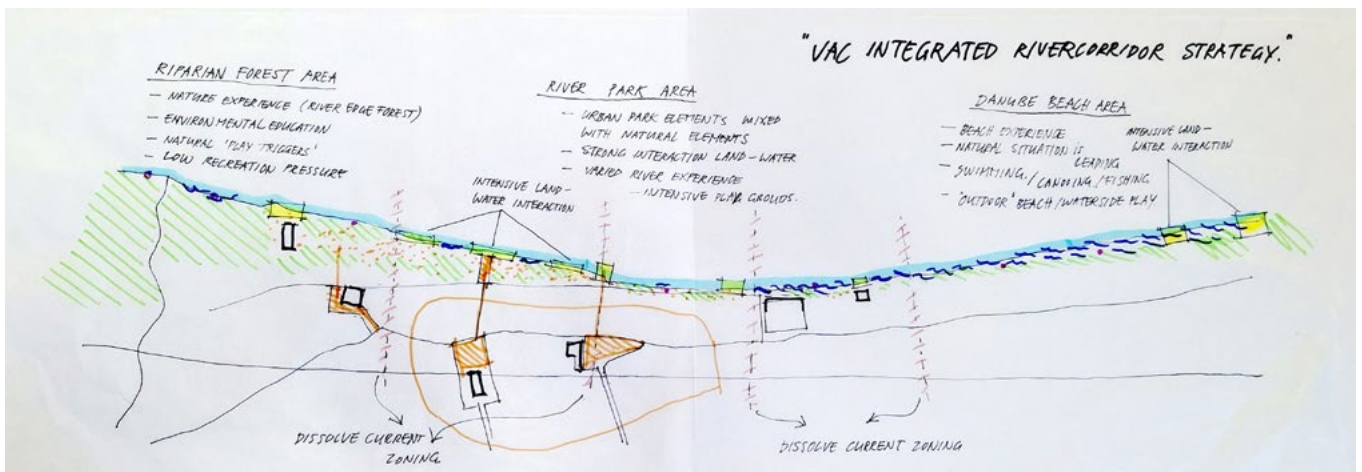 "VAC INTEGRATED RIVERCORRIDOR STRATEGY."
RIPARIAN FOREST AREA
- NATURE EXPERIENCE (RIVER EDGE FOREST)
- ENVIRONMENTAL EDUCATION
- NATURAL 'PLAY TRIGGERS'
- LOW RECREATION PRESSURE
RIVER PARK AREA
- URBAN PARK ELEMENTS MIXED
WITH NATURAL ELEMENTS
- STRONG INTERACTION LAND-WATER
- VARIED RIVER EXPERIENCE
- INTENSIVE PLAY GROUDS.
DANUBE BEACH AREA
- BEACH EXPERIENCE
- NATURAL SITUATION IS
LEADING
- SWIMMING / CANOOING / FISHING
- "OUTDOOR" BEACH / WATERSIDE PLAY
INTENSIVE LAND-
WATER INTERACTION
INTENSIVE LAND-
WATER INTERACTION
DISSOLVE CURRENT
ZONING
DISSOLVE CURRENT ZONING